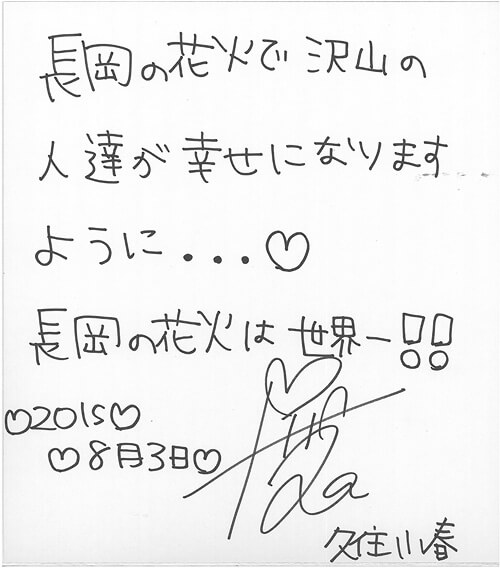 長岡の花火で沢山の
人達が幸せになります
ように...♡
長岡の花火は世界一!!
♡2015♡
♡8月3日♡
久住小春